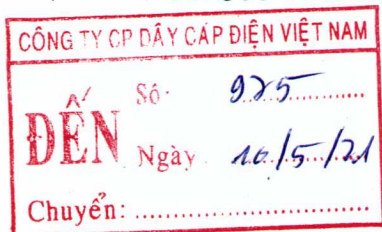 CÔNG TY CP DÂY CÁP ĐIỆN VIỆT NAM
Số: 925
ĐẾN Ngày 10/5/21
Chuyển: